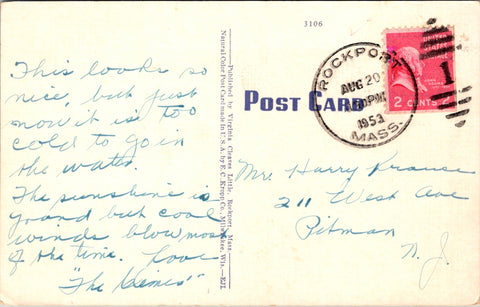 3106
This looks so
nice, but just
now it is too
cold to go in
the water.
The sunshine is
grand but cool
winds blow most
of the time. Love
"The Heines"
Published by Virginia Cleaves Little, Rockport, Mass.
Natural Color Post Card made in U.S.A. by E. C. Kropp Co., Milwaukee, Wis.—EJL
POST CARD
ROCKPORT
AUG 20
PM
1953
MASS.
UNITED STATES
POSTAGE
JOHN ADAMS
2 CENTS 2
1
Mrs Harry Krause
211 West Ave
Pitman
N. J.